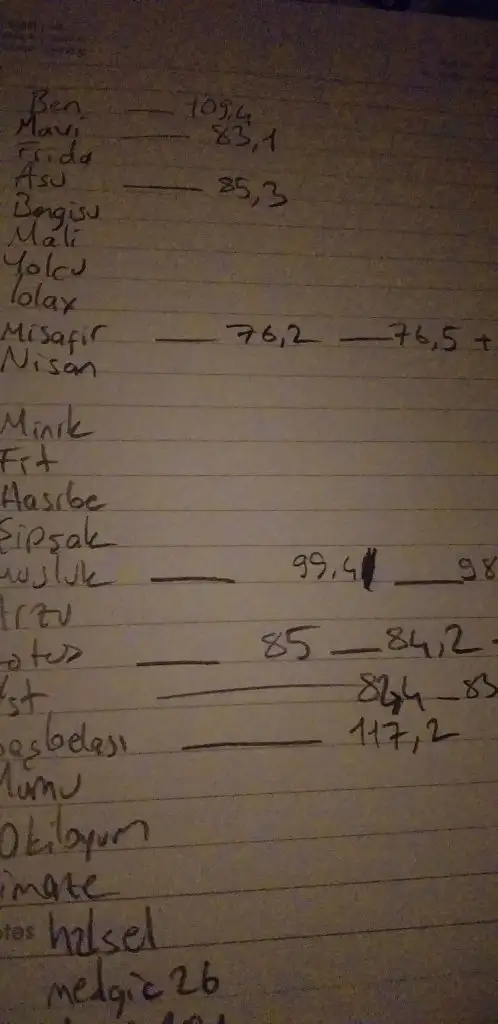 Ben — 109,4
Mavi — 83,1
Frida
Asu — 85,3
Bengisu
Mali
Yolcu
Polax
Misafir — 76,2 — 76,5 +
Nisan
Minik
Fit
Hasibe
Şipşak
usluk — 99,4 — 98
Arzu
otus — 85 — 84,2 -
st — 82,4 — 83
başbelası — 117,2
Mumu
Okiloyum
imate
tes hzlsel
medgic26